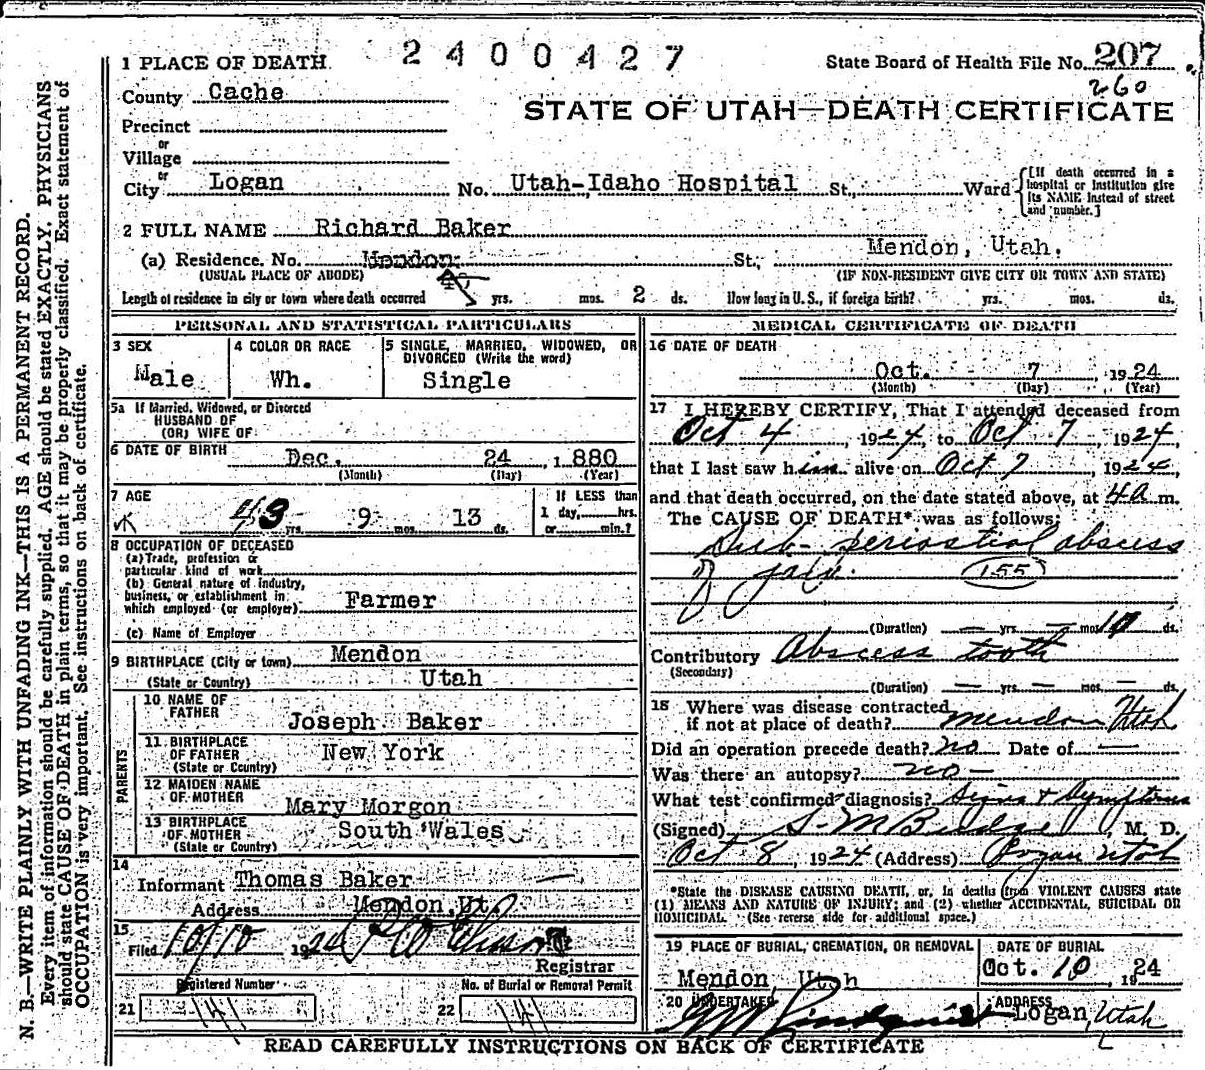 N. B.—WRITE PLAINLY WITH UNFADING INK—THIS IS A PERMANENT RECORD.
Every item of information should be carefully supplied. AGE should be stated EXACTLY. PHYSICIANS
should state CAUSE OF DEATH in plain terms, so that it may be properly classified. Exact statement of
OCCUPATION is very important. See instructions on back of certificate.
2400427
1 PLACE OF DEATH
State Board of Health File No. 207
260
County Cache
STATE OF UTAH—DEATH CERTIFICATE
Precinct
or
Village
or
City Logan No. Utah-Idaho Hospital St., Ward
[If death occurred in a
hospital or institution give
its NAME instead of street
and number.]
2 FULL NAME Richard Baker
(a) Residence. No. Mendon St., Mendon, Utah.
(USUAL PLACE OF ABODE) (IF NON-RESIDENT GIVE CITY OR TOWN AND STATE)
Length of residence in city or town where death occurred yrs. mos. 2 ds. How long in U. S., if foreign birth? yrs. mos. ds.
PERSONAL AND STATISTICAL PARTICULARS
3 SEX
Male
4 COLOR OR RACE
Wh.
5 SINGLE, MARRIED, WIDOWED, OR
DIVORCED (Write the word)
Single
5a If Married, Widowed, or Divorced
HUSBAND OF
(OR) WIFE OF
6 DATE OF BIRTH Dec. 24, 1880
(Month) (Day) (Year)
7 AGE
43 yrs. 9 mos. 13 ds.
If LESS than
1 day, hrs.
or min.?
8 OCCUPATION OF DECEASED
(a) Trade, profession or
particular kind of work
(b) General nature of industry,
business, or establishment in
which employed (or employer) Farmer
(c) Name of Employer
9 BIRTHPLACE (City or town) Mendon
(State or Country) Utah
PARENTS
10 NAME OF
FATHER Joseph Baker
11 BIRTHPLACE
OF FATHER New York
(State or Country)
12 MAIDEN NAME
OF MOTHER Mary Morgon
13 BIRTHPLACE
OF MOTHER South Wales
(State or Country)
14
Informant Thomas Baker
Address Mendon, Ut.
15
Filed 10/10 1924
Registrar
Registered Number
21 141
No. of Burial or Removal Permit
22 141
MEDICAL CERTIFICATE OF DEATH
16 DATE OF DEATH
Oct. 7, 1924
(Month) (Day) (Year)
17 I HEREBY CERTIFY, That I attended deceased from
Oct 4, 1924, to Oct 7, 1924,
that I last saw him alive on Oct 7, 1924,
and that death occurred, on the date stated above, at 4a m.
The CAUSE OF DEATH* was as follows:
Sub-periostial abscess
of jaw. 155
(Duration) — yrs. — mos. 10 ds.
Contributory Abscess tooth
(Secondary)
(Duration) — yrs. — mos. — ds.
18 Where was disease contracted
if not at place of death? Mendon Utah
Did an operation precede death? no Date of —
Was there an autopsy? no —
What test confirmed diagnosis? Signs & Symptoms
(Signed) S M Budge, M. D.
Oct 8, 1924 (Address) Logan Utah
*State the DISEASE CAUSING DEATH, or, in deaths from VIOLENT CAUSES state
(1) MEANS AND NATURE OF INJURY; and (2) whether ACCIDENTAL, SUICIDAL OR
HOMICIDAL. (See reverse side for additional space.)
19 PLACE OF BURIAL, CREMATION, OR REMOVAL
Mendon, Utah
DATE OF BURIAL
Oct. 10, 1924
20 UNDERTAKER
Lindquist
ADDRESS
Logan, Utah
READ CAREFULLY INSTRUCTIONS ON BACK OF CERTIFICATE